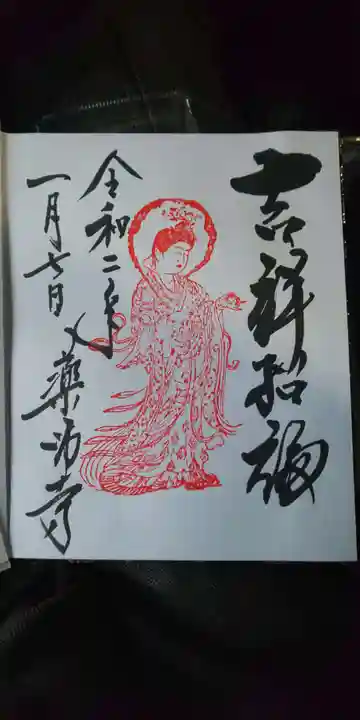 吉祥招福
令和二年
一月七日
薬師寺